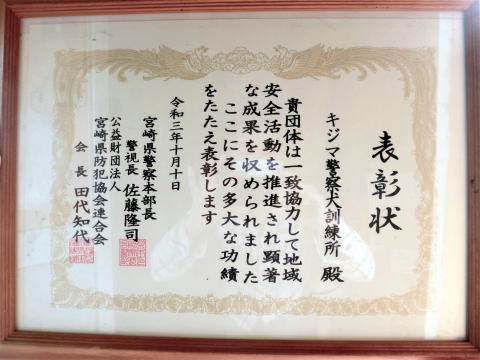 表彰状
キジマ警察犬訓練所 殿
貴団体は一致協力して地域
安全活動を推進され顕著
な成果を収められました
ここにその多大な功績
をたたえ表彰します
令和三年十月十日
宮崎県警察本部長
警視長 佐藤隆司
公益財団法人
宮崎県防犯協会連合会
会長 田代知代